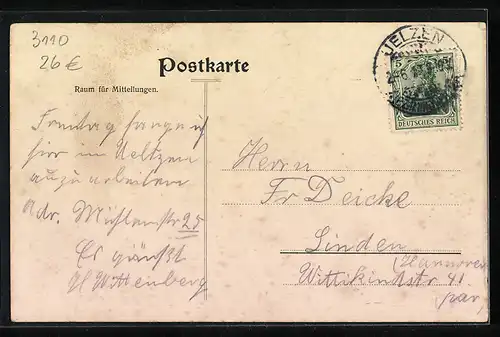 3110
26 €
Postkarte
Raum für Mitteilungen.
UELZEN
5
DEUTSCHES REICH
Freitag fange ich
hier in Ueltzen
an zu arbeiten
Adr. Mühlenstr 25
Es grüßt
H Wittenberg
Herrn
Fr Deicke
Linden
(Hannover
Wittikindstr 41
par)